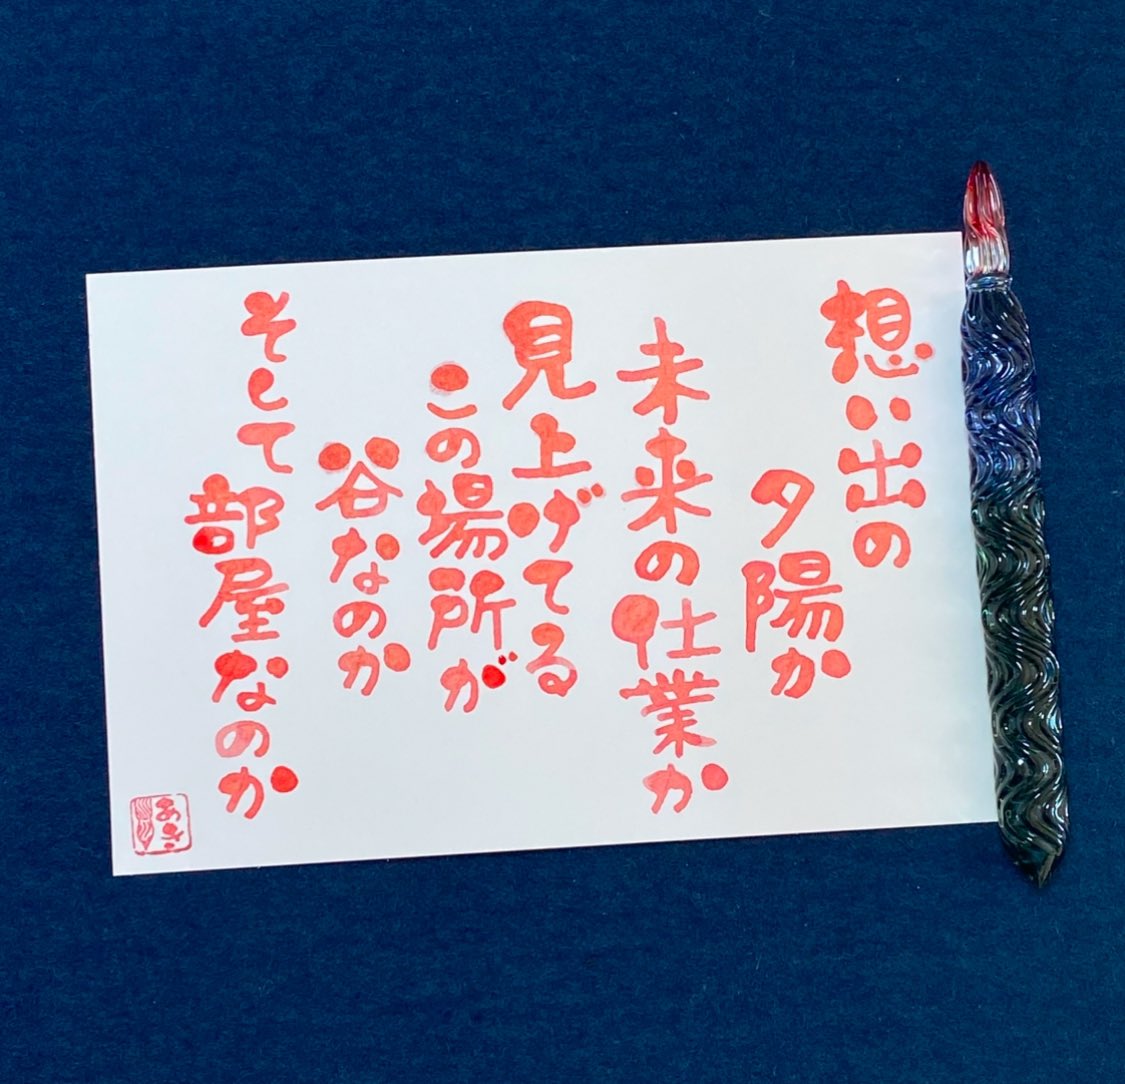 想い出の
夕陽か
未来の仕業か
見上げてる
この場所が
谷なのか
そして部屋なのか
あき